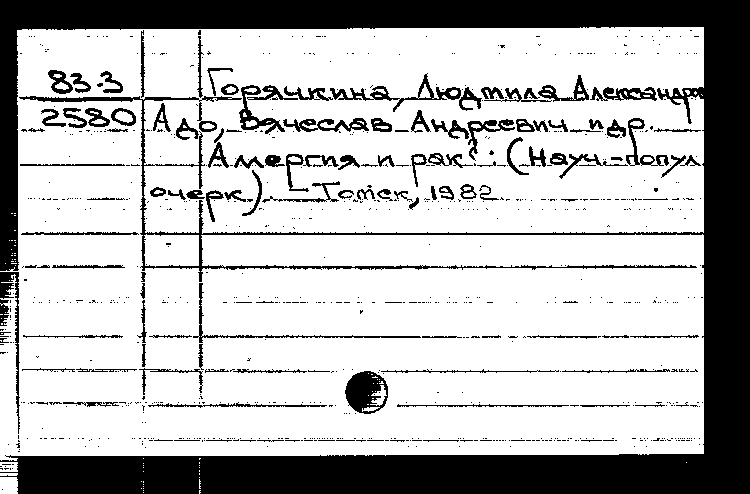 83-3 Горячкина, Людмила Александров
2580 Адо, Вячеслав Андреевич и др.
Аллергия и рак? : (Науч.-попул.
очерк). — Томск, 1982